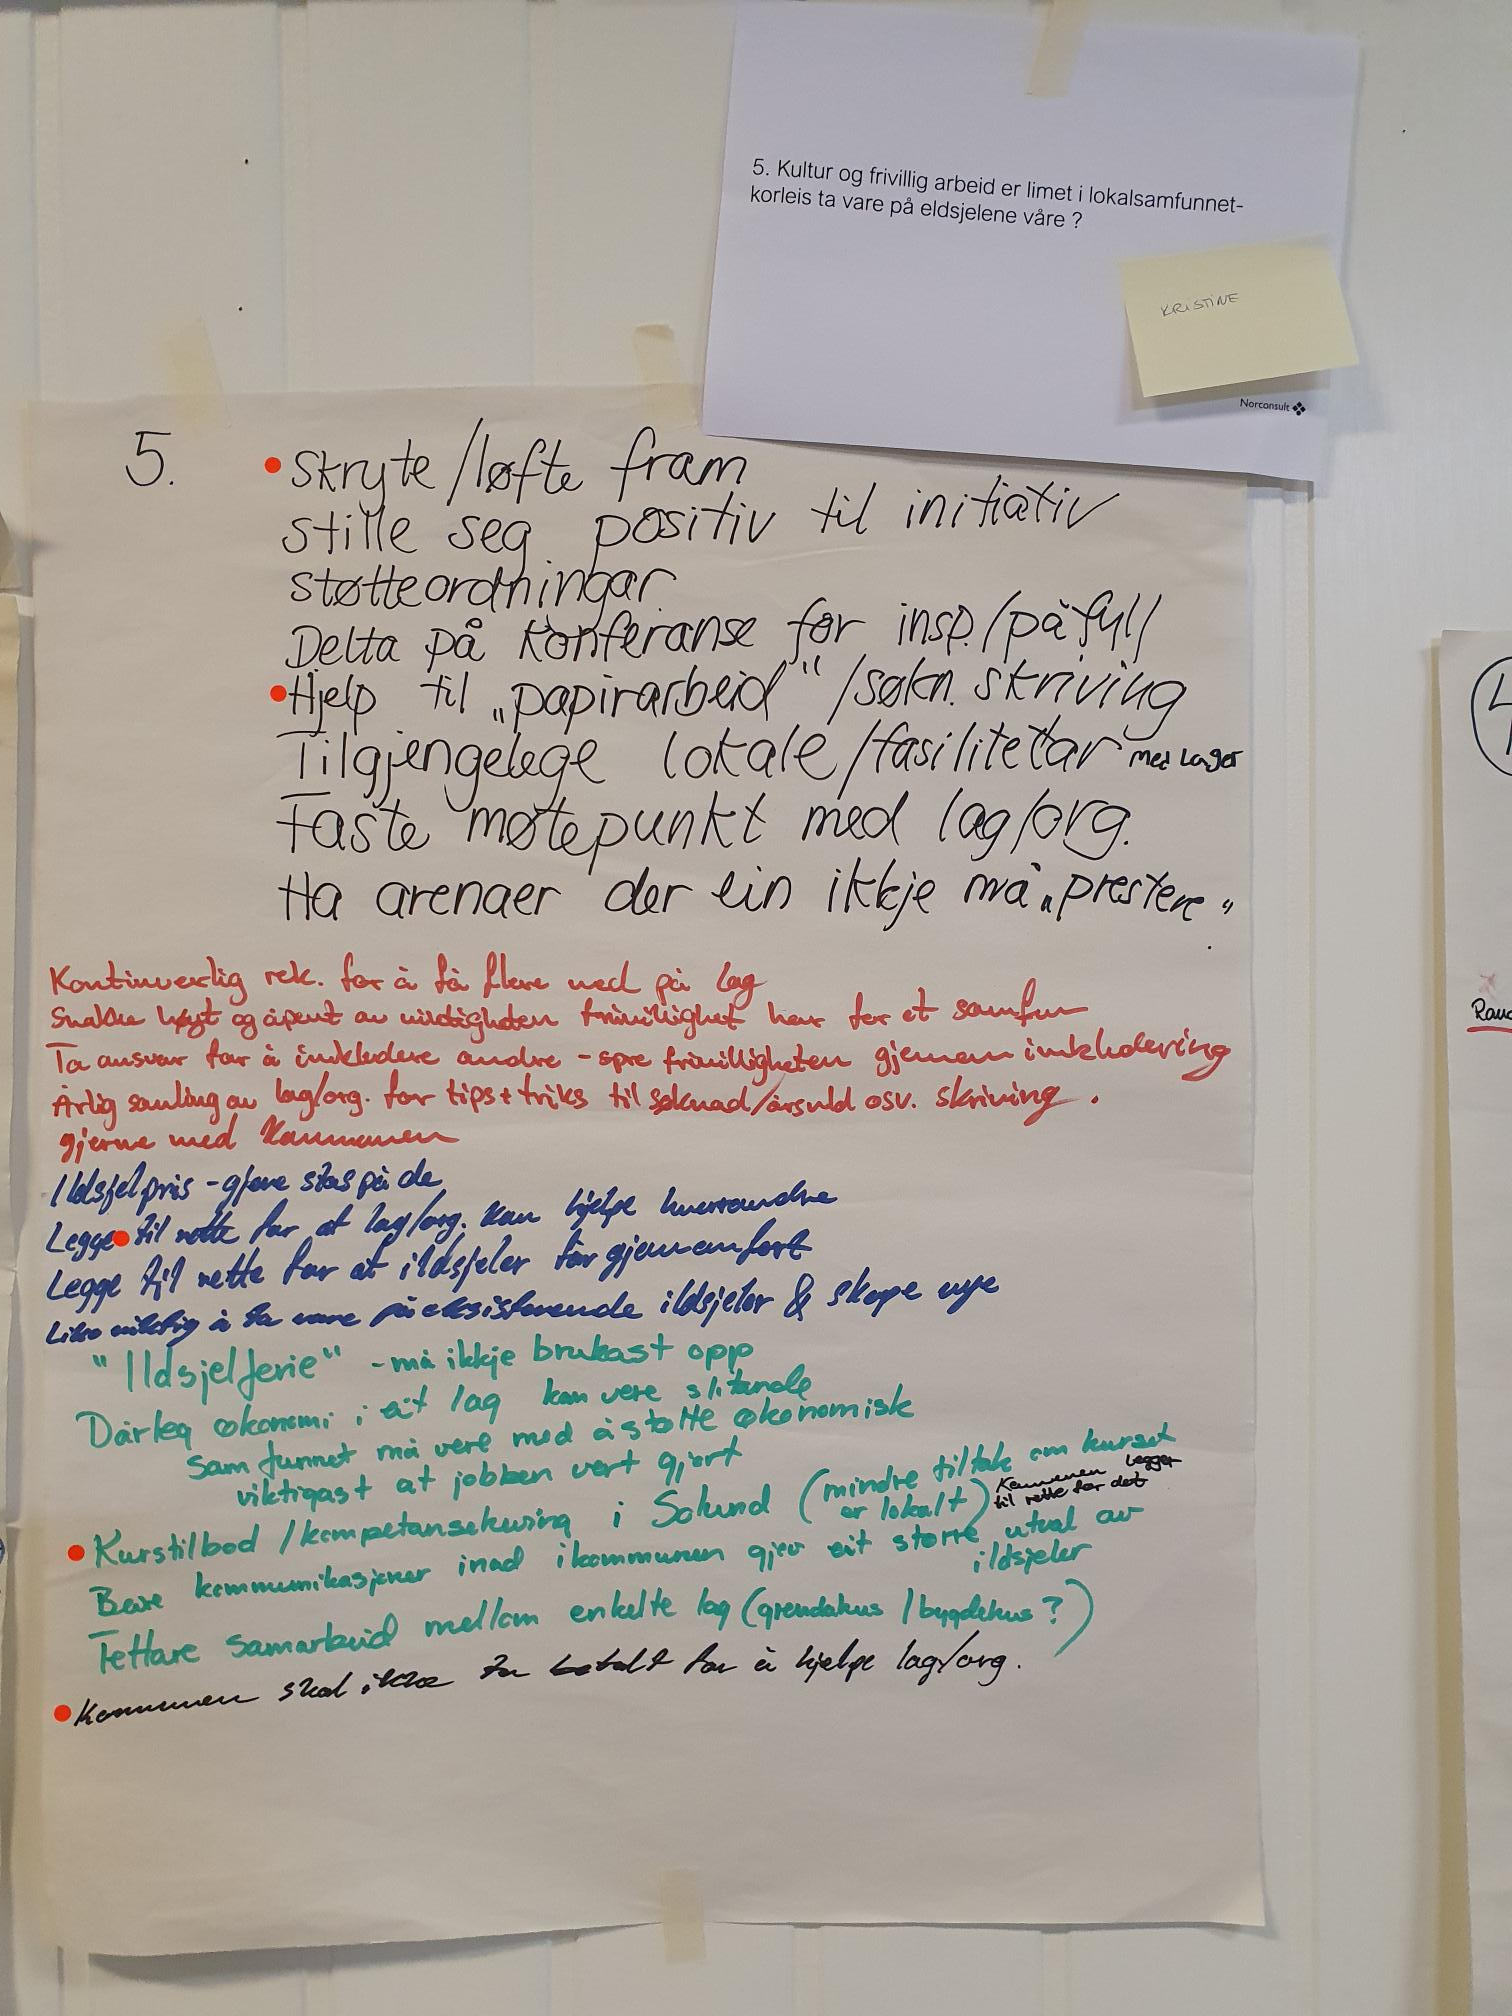 5. Kultur og frivillig arbeid er limet i lokalsamfunnet-
korleis ta vare på eldsjelene våre ?
KRISTINE
Norconsult
5.
Skryte/løfte fram
stille seg positiv til initiativ
støtteordningar
Delta på konferanse for insp./påfyll
Hjelp til „papirarbeid"/søkn. skriving
Tilgjengelege lokale/fasilitetar med lager
Faste møtepunkt med lag/org.
Ha arenaer der ein ikkje må „prestere"
Kontinuerlig rek. for å få flere med på lag
Snakke høyt og åpent av viktigheten frivillighet har for et samfun
Ta ansvar for å inkludere andre - spre frivilligheten gjennom inkludering
Årlig samling av lag/org. for tips + triks til søknad/årsuld osv. skriving.
gjerne med kommunen
Ildsjelpris - gjøre stas på de
Legge til rette for at lag/org. kan hjelpe hverandre
Legge til rette for at ildsjeler får gjennomført
Like viktig å ta vare på eksisterende ildsjeler & skape nye
"Ildsjelferie" - må ikkje brukast opp
Dårleg økonomi i eit lag kan vere slitande
Samfunnet må vere med å støtte økonomisk
viktigast at jobben vert gjort
Kurstilbod/kompetanseheving i Solund (mindre tiltak om kurset
er lokalt) Kommunen legger
til rette for det
Bere kommunikasjoner inad i kommunen gjev eit større utval av
ildsjeler
Tettare samarbeid mellom enkelte lag (grendahus/bygdehus?)
Kommunen skal ikke ta betalt for å hjelpe lag/org.
4